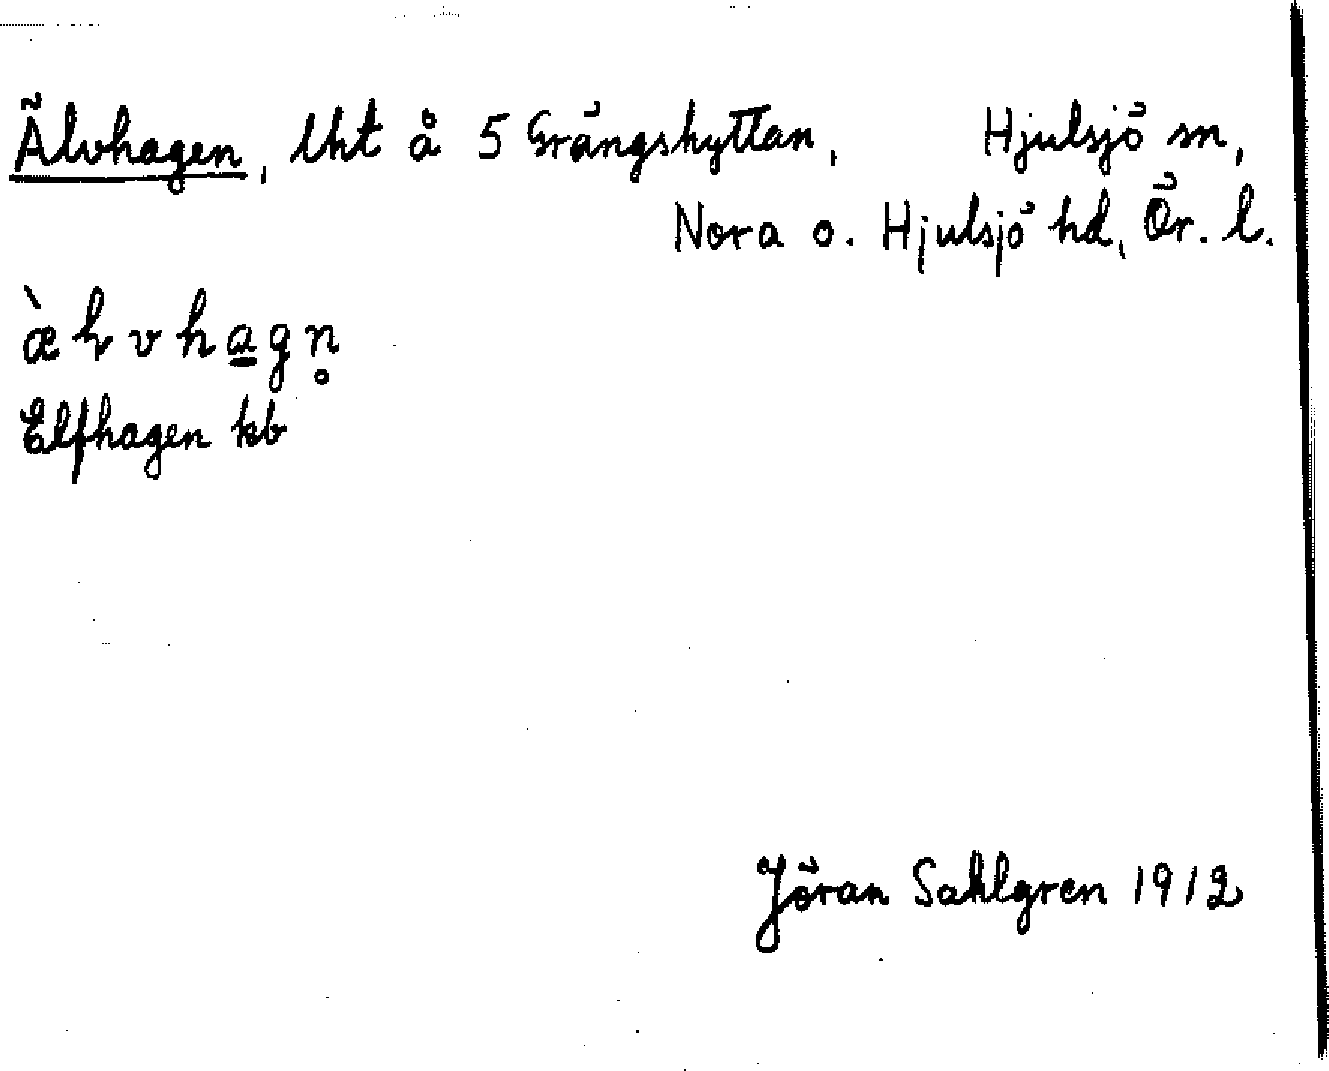 Älvhagen, lht å 5 Grängshyttan, Hjulsjö sn,
Nora o. Hjulsjö hd, Ör. l.
Elfhagen kb
Jöran Sahlgren 1912